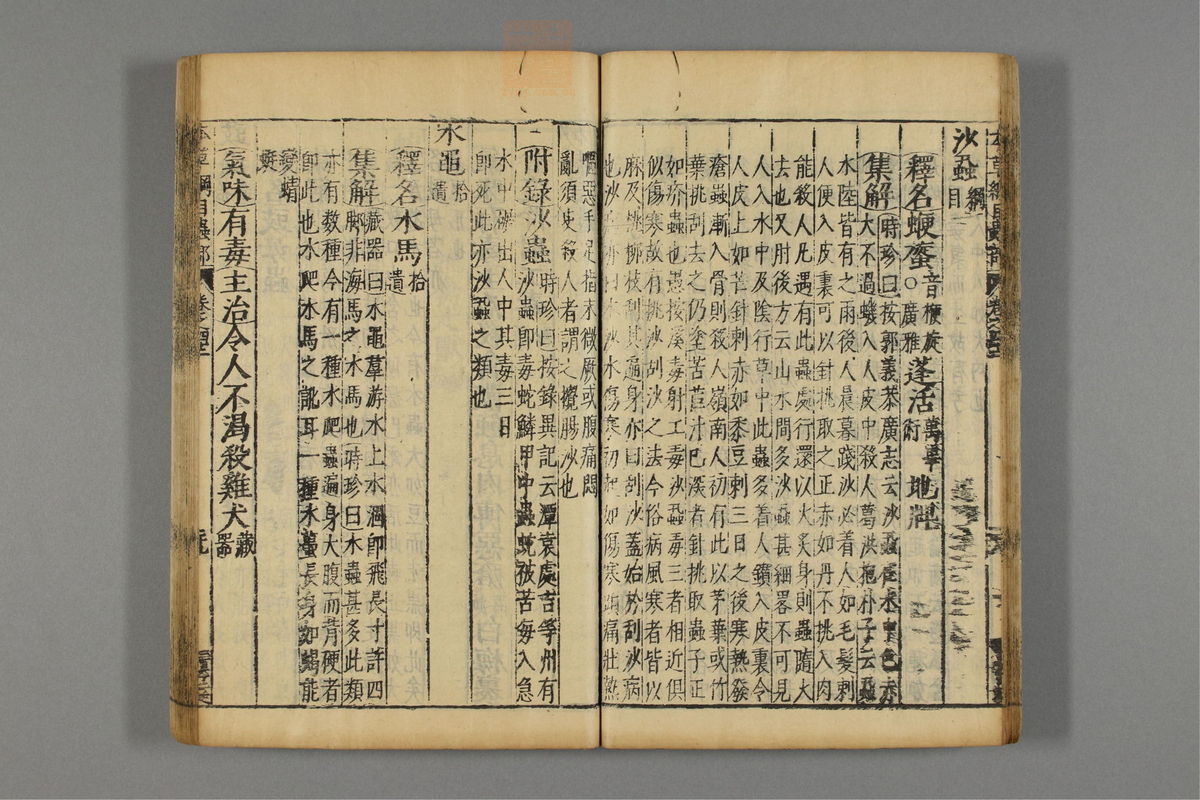 沙蝨綱目
釋名蛷𧎜音梗旋○廣雅蓬活萬畢術地牌
集解時珍曰按郭義恭廣志云沙蝨在水中色赤
大不過蟣入人皮中殺人葛洪抱朴子云蝨
水陸皆有之雨後人晨暮踐沙必着人如毛髮刺
人便入皮裏可以針挑取之正赤如丹不挑入肉
能殺人凡遇有此蟲處行還以火炙身則蟲隨火
去也又肘後方云山水間多沙蝨甚細畧不可見
人入水中及陰行草中此蟲多着人鑽入皮裏令
人皮上如芒針刺赤如黍豆刺三日之後寒熱發
瘡蟲漸入骨則殺人嶺南人初有此以茅葉或竹
葉挑刮去之仍塗苦苣汁已深者針挑取蟲子正
如疥蟲也愚按溪毒射工毒沙蝨毒三者相近俱
似傷寒故有挑沙刮沙之法今俗病風寒者皆以
麻及桃柳枝刮其遍身亦曰刮沙蓋始於刮沙病
也沙
嘔惡手足指末微厥或腹痛悶
亂須臾殺人者謂之攪腸沙也
附錄沙蟲時珍曰按錄異記云潭袁處吉等州有
沙蟲即毒蛇鱗甲中蟲蛇被苦每入急
水中碾出人中其毒三日
即死此亦沙蝨之類也
水黽拾遺
釋名水馬拾遺
集解藏器曰水黽羣游水上水涸即飛長寸許四
脚非海馬之水馬也時珍曰水蟲甚多此類
亦有數種今有一種水爬蟲遍身大腹而背硬者
即此也水爬水馬之訛耳一種水蠆長身如蝎能
變蜻蜓
氣味有毒主治令人不渴殺雞犬藏器